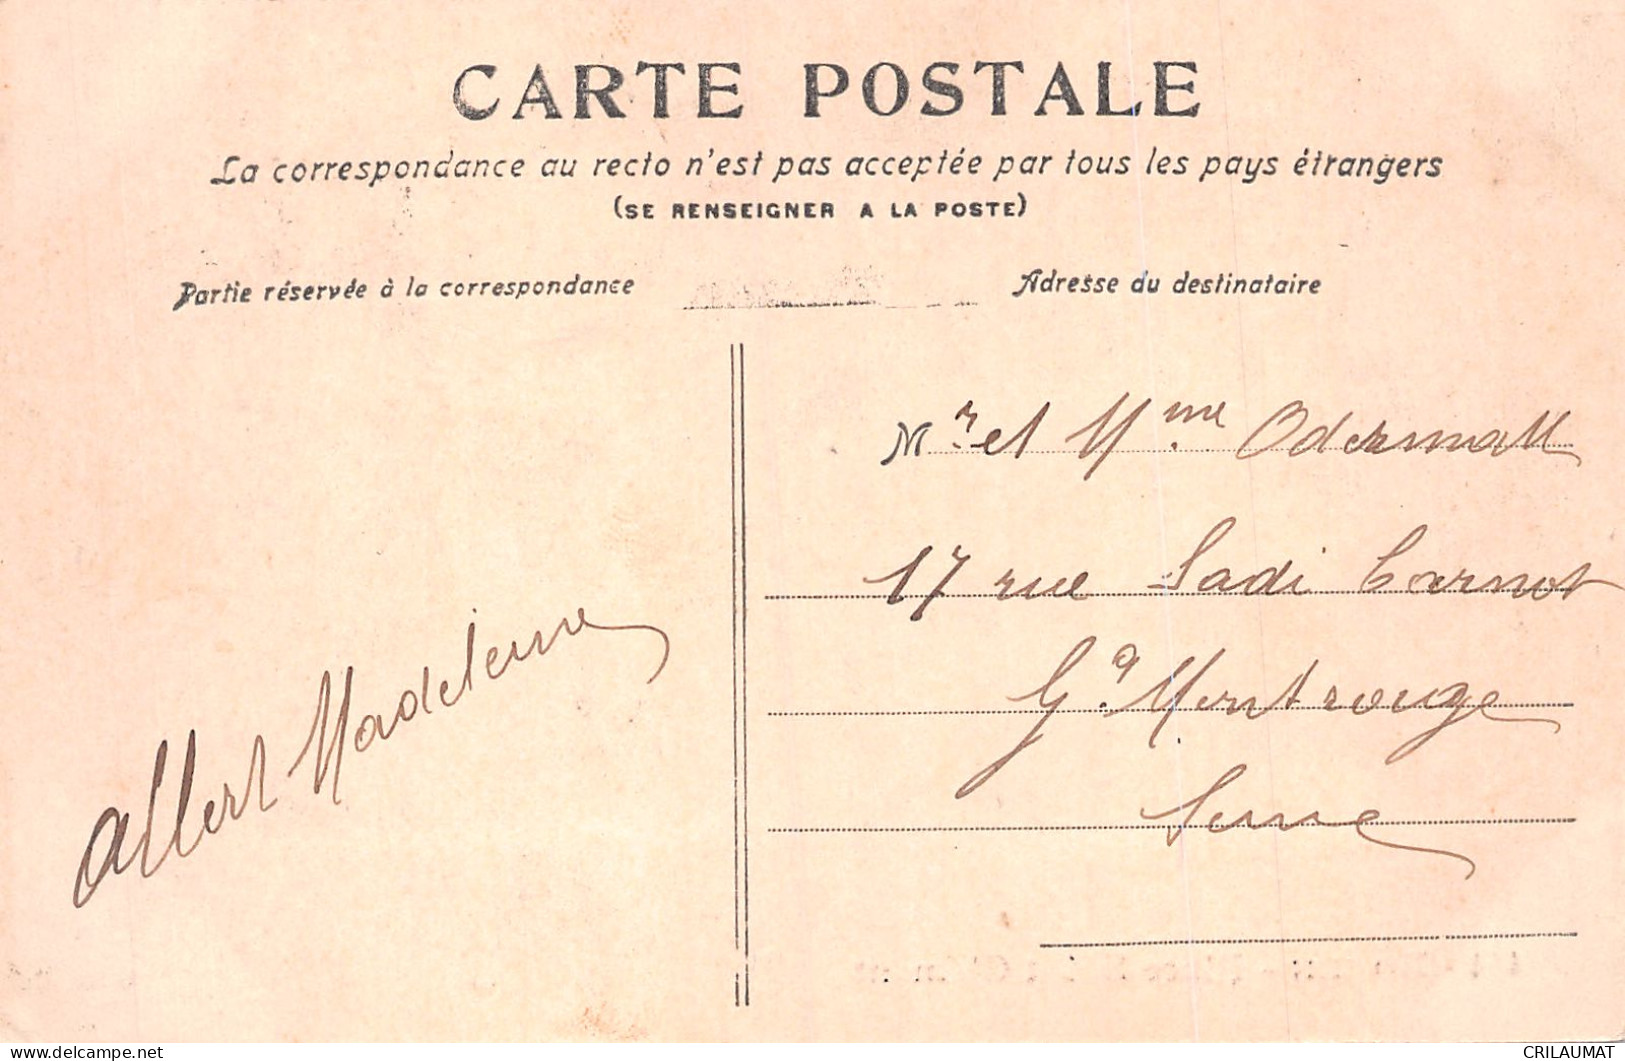 CARTE POSTALE
La correspondance au recto n'est pas acceptée par tous les pays étrangers
(SE RENSEIGNER A LA POSTE)
Partie réservée à la correspondance
Adresse du destinataire
Mr et Mme Odermatt
17 rue Sadi Carnot
Gd Montrouge
Seine
Albert Madeleine
delcampe.net
CRILAUMAT